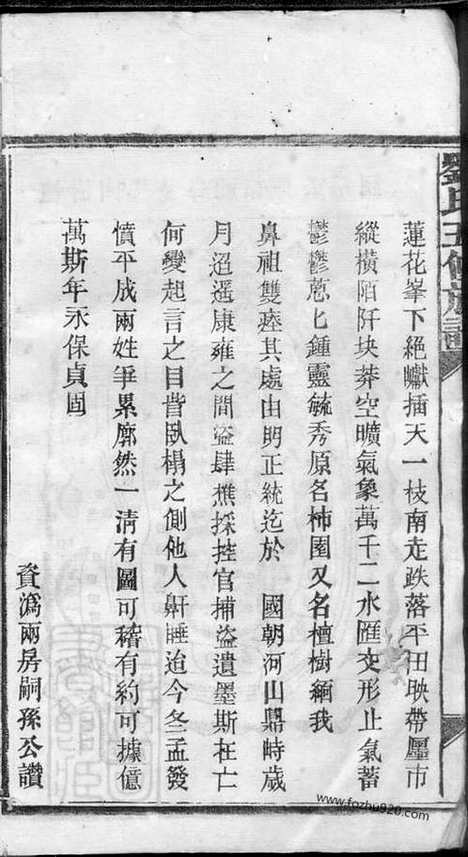 劉氏五修族譜
蓮花峯下絕巘插天一枝南走跌落平田映帶廛市
縱橫陌阡坱莽空曠氣象萬千二水匯交形止氣蓄
鬱鬱蔥匕鍾靈毓秀原名柿園又名檀樹緬我
鼻祖雙瘞其處由明正統迄於 國朝河山鼎峙歲
月迢遥康雍之間盜肆樵採控官捕盜遺墨斯在亡
何變起言之目眥臥榻之側他人鼾睡迨今冬孟發
憤平成兩姓爭累廓然一清有圖可稽有約可據億
萬斯年永保貞固
資潙兩房嗣孫公讚
www.fozhu920.com